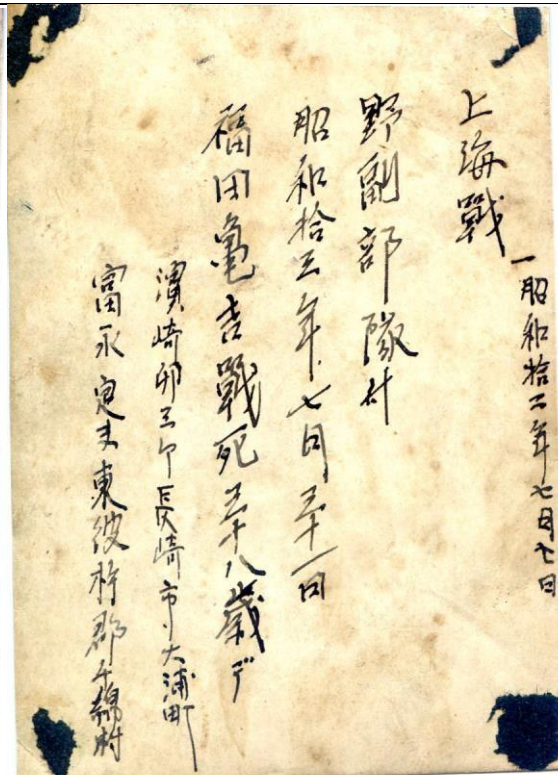 上海戰
一昭和拾二年七月七日
野副部隊附
昭和拾三年七月三十一日
福田亀吉戰死三十八歳デ
濱崎卯三郎長崎市大浦町
富永定夫東彼杵郡千綿村